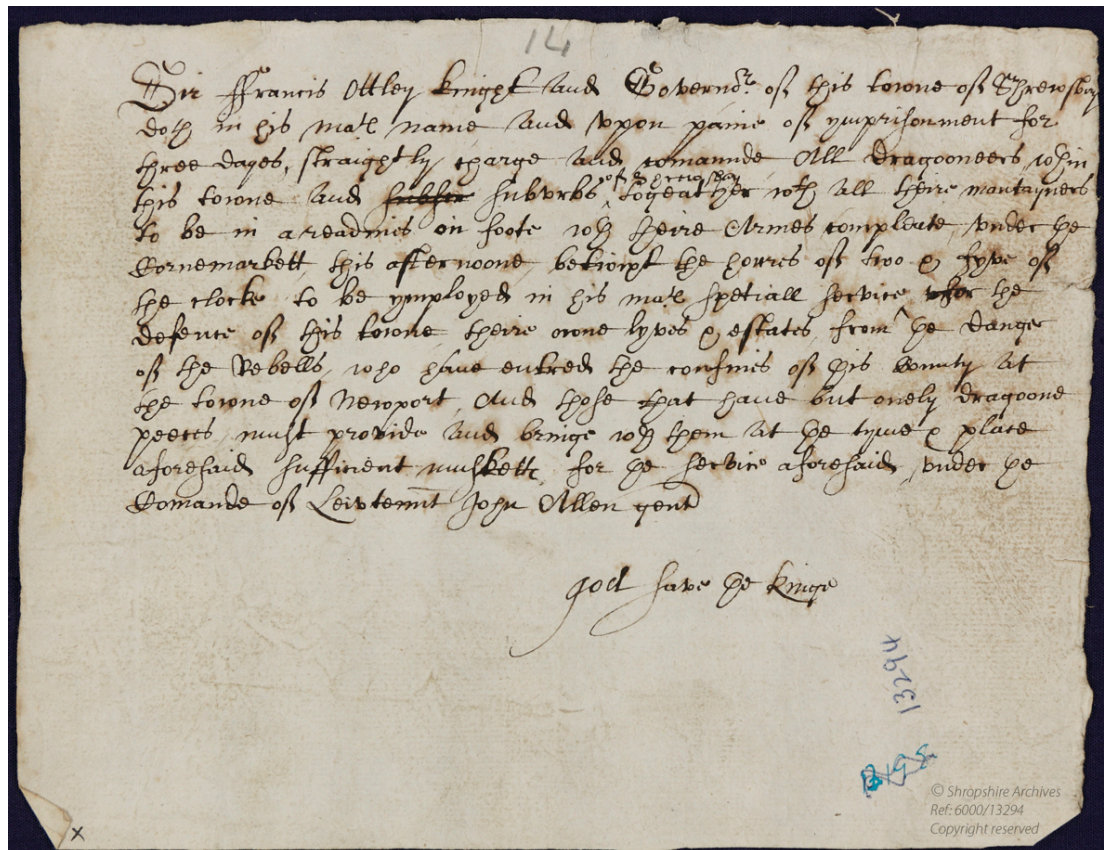 14
Sir ffrancis Ottley knight and Governor of this towne of Shrewsbury
doth in his matis name and vpon paine of ymprisonment for
three dayes, straightly charge and comaunde All dragooneers wthin
this towne and subvrbs of Shrewsbury togeather wth all theire mantayners
to be in a readines on foote wth theire Armes compleate, vnder the
Cornemarkett, this afternoone, betwixt the howres of two & fyve of
the clocke to be ymployed in his matis spetiall service for the
defence of this towne, theire owne lyves & estates, from ye danger
of the Rebells, who have entred the confines of this County at
the towne of Newport, And those that have but onely dragoone
peeces, must provide and bringe wth them at ye tyme & place
aforesaid sufficient muskette, for ye service aforesaid, vnder ye
Comande of Leivtennt John Allen gent
god save ye kinge
13294
© Shropshire Archives
Ref: 6000/13294
Copyright reserved